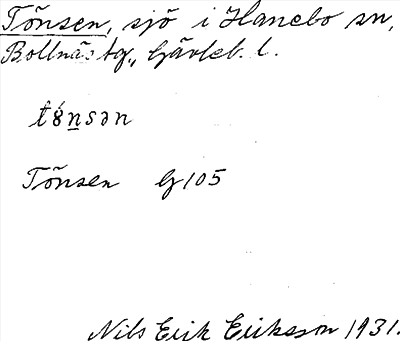 Tönsen, sjö i Hanebo sn,
Bollnäs tg., Gävleb. l.
tö́nsən
Tönsen G 105
Nils Erik Eriksson 1931.